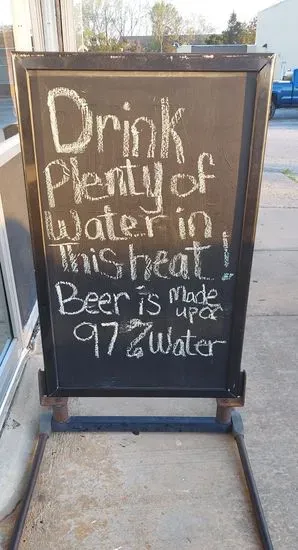 Drink
Plenty of
Water in
This heat!
Beer is made up of
97% Water